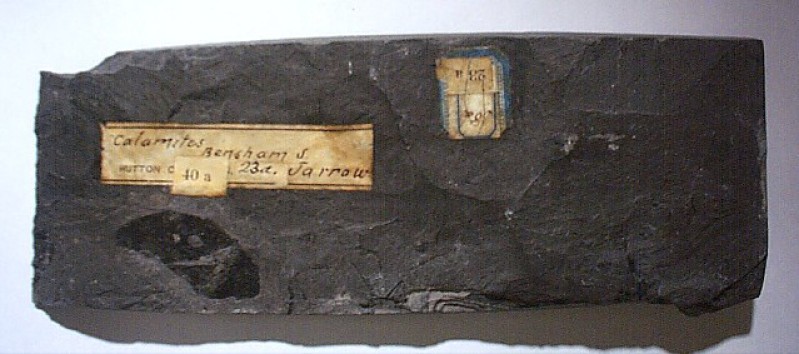 Calamites
Bensham S.
HUTTON C
23a. Jarrow
40 a
23 a